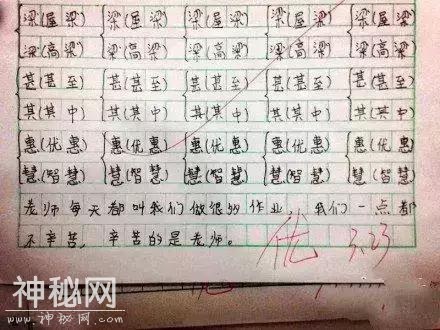 梁(屋梁) 梁(屋梁) 梁(屋梁) 梁(屋梁) 梁(屋梁)
粱(高粱) 粱(高粱) 粱(高粱) 粱(高粱) 粱(高粱)
甚(甚至) 甚(甚至) 甚(甚至) 甚(甚至) 甚(甚至)
其(其中) 其(其中) 其(其中) 其(其中) 其(其中)
惠(优惠) 惠(优惠) 惠(优惠) 惠(优惠) 惠(优惠)
慧(智慧) 慧(智慧) 慧(智慧) 慧(智慧) 慧(智慧)
老师每天都叫我们做很多作业,我们一点都
不辛苦,辛苦的是老师。
优 3.23
神秘网
WWW.SHENMIW.COM